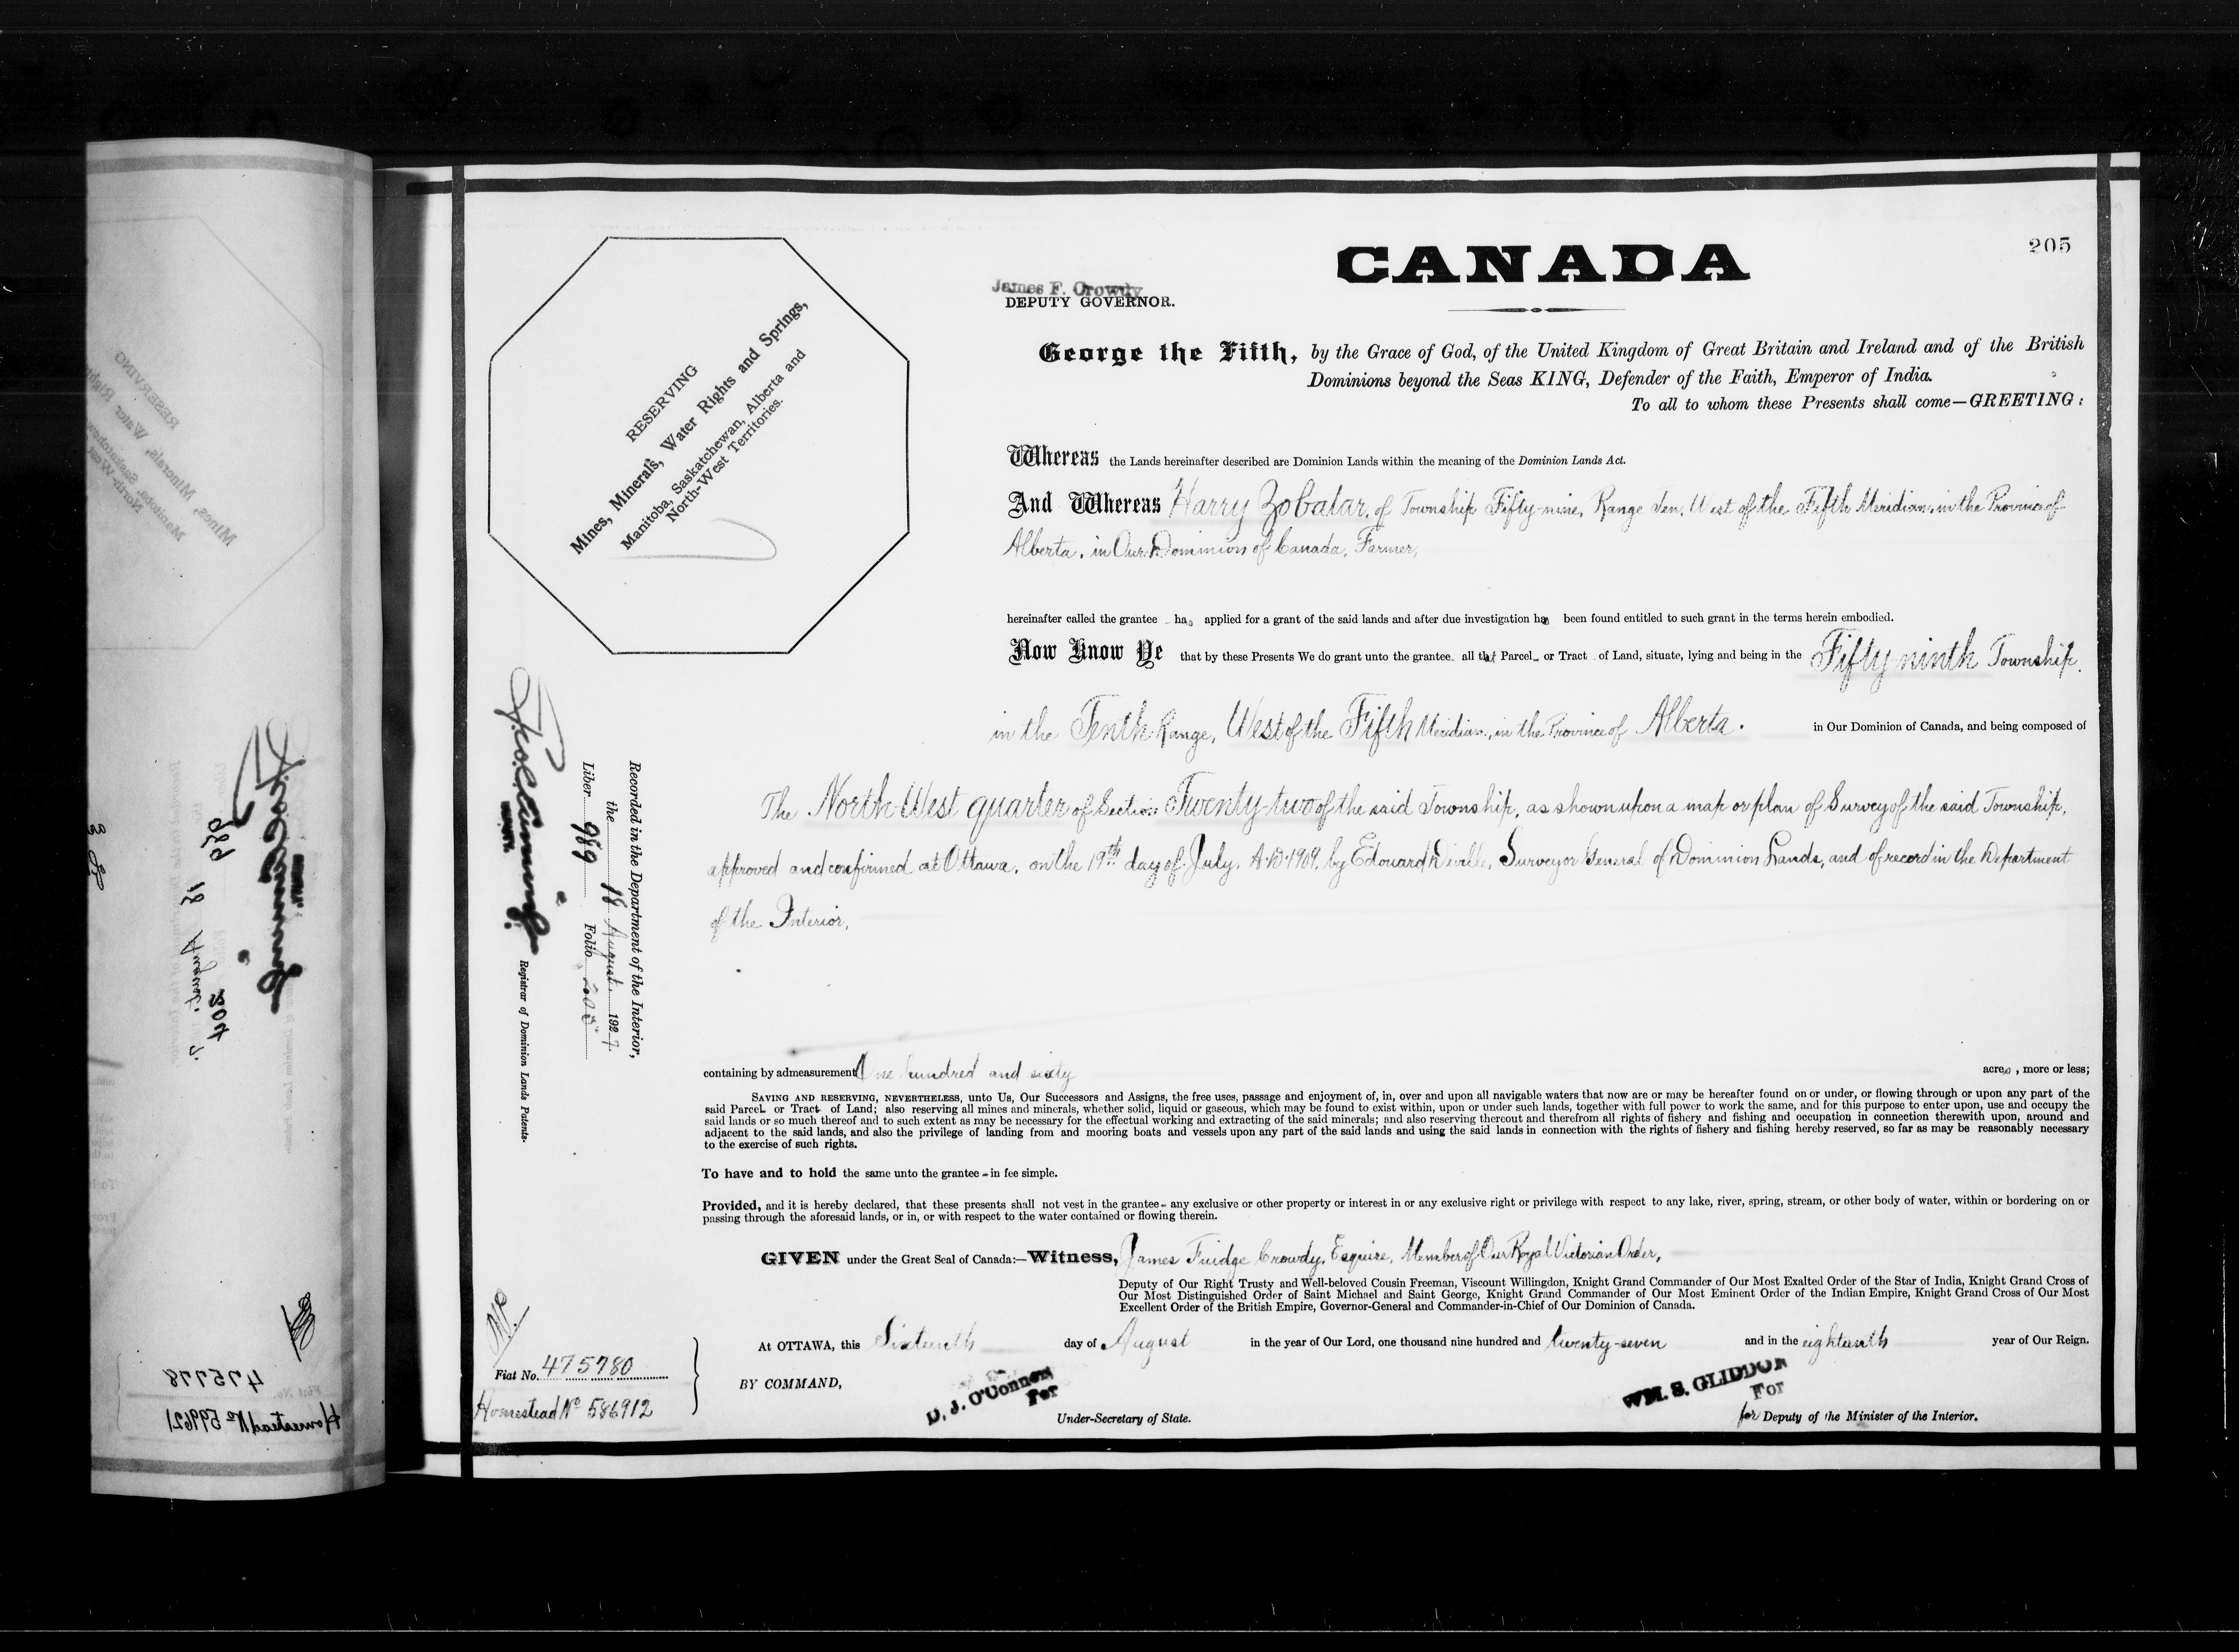 205
CANADA
James F. Crowdy
DEPUTY GOVERNOR.
RESERVING
Mines, Minerals, Water Rights and Springs,
Manitoba, Saskatchewan, Alberta and
North-West Territories.
George the Fifth, by the Grace of God, of the United Kingdom of Great Britain and Ireland and of the British
Dominions beyond the Seas KING, Defender of the Faith, Emperor of India.
To all to whom these Presents shall come—GREETING:
Whereas the Lands hereinafter described are Dominion Lands within the meaning of the Dominion Lands Act.
And Whereas Harry Zobatar, of Township Fifty-nine, Range Ten, West of the Fifth Meridian, in the Province of
Alberta, in Our Dominion of Canada, Farmer,
hereinafter called the grantee has applied for a grant of the said lands and after due investigation has been found entitled to such grant in the terms herein embodied.
Now Know Ye that by these Presents We do grant unto the grantee all that Parcel or Tract of Land, situate, lying and being in the Fifty-ninth Township,
in the Tenth Range, West of the Fifth Meridian, in the Province of Alberta. in Our Dominion of Canada, and being composed of
The North West quarter of Section Twenty-two of the said Township, as shown upon a map or plan of Survey of the said Township,
approved and confirmed at Ottawa, on the 19th day of July, A.D. 1909, by Edouard Deville, Surveyor General of Dominion Lands, and of record in the Department
of the Interior,
Recorded in the Department of the Interior,
the 18 August 1927.
Liber 989 Folio 205
Registrar of Dominion Lands Patents.
containing by admeasurement One hundred and sixty acres, more or less;
SAVING AND RESERVING, NEVERTHELESS, unto Us, Our Successors and Assigns, the free uses, passage and enjoyment of, in, over and upon all navigable waters that now are or may be hereafter found on or under, or flowing through or upon any part of the
said Parcel or Tract of Land; also reserving all mines and minerals, whether solid, liquid or gaseous, which may be found to exist within, upon or under such lands, together with full power to work the same, and for this purpose to enter upon, use and occupy the
said lands or so much thereof and to such extent as may be necessary for the effectual working and extracting of the said minerals; and also reserving thereout and therefrom all rights of fishery and fishing and occupation in connection therewith upon, around and
adjacent to the said lands, and also the privilege of landing from and mooring boats and vessels upon any part of the said lands and using the said lands in connection with the rights of fishery and fishing hereby reserved, so far as may be reasonably necessary
to the exercise of such rights.
To have and to hold the same unto the grantee in fee simple.
Provided, and it is hereby declared, that these presents shall not vest in the grantee any exclusive or other property or interest in or any exclusive right or privilege with respect to any lake, river, spring, stream, or other body of water, within or bordering on or
passing through the aforesaid lands, or in, or with respect to the water contained or flowing therein.
GIVEN under the Great Seal of Canada:—Witness, James Fuidge Crowdy, Esquire, Member of Our Royal Victorian Order,
Deputy of Our Right Trusty and Well-beloved Cousin Freeman, Viscount Willingdon, Knight Grand Commander of Our Most Exalted Order of the Star of India, Knight Grand Cross of
Our Most Distinguished Order of Saint Michael and Saint George, Knight Grand Commander of Our Most Eminent Order of the Indian Empire, Knight Grand Cross of Our Most
Excellent Order of the British Empire, Governor-General and Commander-in-Chief of Our Dominion of Canada.
At OTTAWA, this Sixteenth day of August in the year of Our Lord, one thousand nine hundred and twenty-seven and in the eighteenth year of Our Reign.
Fiat No. 475780
Homestead No 586912
BY COMMAND,
D. J. O'Connor
For
Under-Secretary of State.
WM. S. GLIDDON
For
for Deputy of the Minister of the Interior.
475778
Homestead No 599621